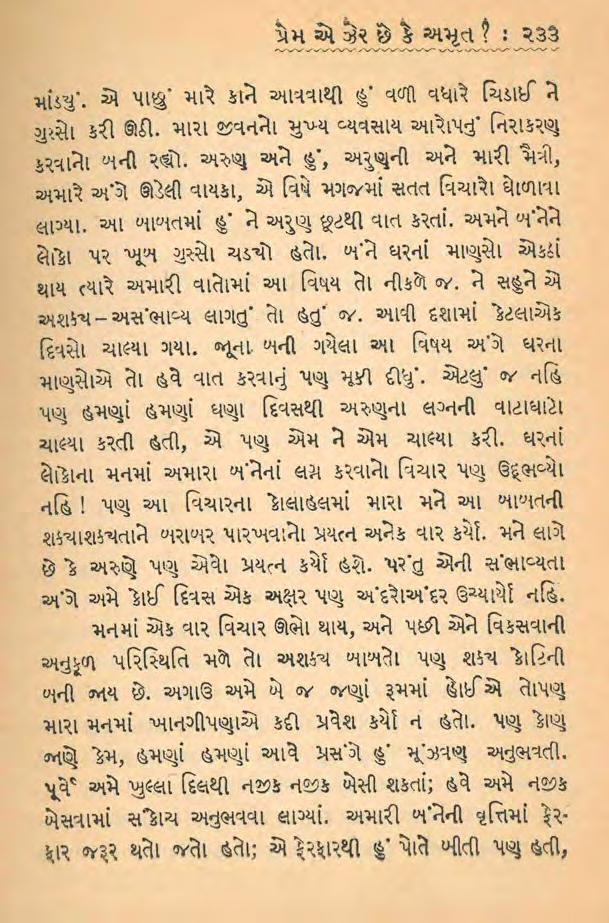 પ્રેમ એ ઝેર છે કે અમૃત? : ૨૩૩
માંડ્યું. એ પાછું મારે કાને આવવાથી હું વળી વધારે ચિડાઈ ને
ગુસ્સો કરી ઊઠી. મારા જીવનનો મુખ્ય વ્યવસાય આરોપનું નિરાકરણ
કરવાનો બની રહ્યો. અરુણ અને હું, અરુણની અને મારી મૈત્રી,
અમારે અંગે ઊડેલી વાયકા, એ વિષે મગજમાં સતત વિચારો ઘોળાવા
લાગ્યા. આ બાબતમાં હું ને અરુણ છૂટથી વાત કરતાં. અમને બંનેને
લોકો પર ખૂબ ગુસ્સો ચડ્યો હતો. બંને ઘરનાં માણસો એકઠાં
થાય ત્યારે અમારી વાતોમાં આ વિષય તો નીકળે જ. ને સહુને એ
અશક્ય – અસંભાવ્ય લાગતું તો હતું જ. આવી દશામાં કેટલાએક
દિવસો ચાલ્યા ગયા. જૂના બની ગયેલા આ વિષય અંગે ઘરના
માણસોએ તો હવે વાત કરવાનું પણ મૂકી દીધું. એટલું જ નહિ
પણ હમણાં હમણાં ઘણા દિવસથી અરુણના લગ્નની વાટાઘાટો
ચાલ્યા કરતી હતી, એ પણ એમ ને એમ ચાલ્યા કરી. ઘરનાં
લોકોના મનમાં અમારા બંનેનાં લગ્ન કરવાનો વિચાર પણ ઉદ્દભવ્યો
નહિ ! પણ આ વિચારના કોલાહલમાં મારા મને આ બાબતની
શક્યાશક્યતાને બરાબર પારખવાનો પ્રયત્ન અનેક વાર કર્યો. મને લાગે
છે કે અરુણે પણ એવો પ્રયત્ન કર્યો હશે. પરંતુ એની સંભાવ્યતા
અંગે અમે કોઈ દિવસ એક અક્ષર પણ અંદરોઅંદર ઉચ્ચાર્યો નહિ.
મનમાં એક વાર વિચાર ઊભો થાય, અને પછી એને વિકસવાની
અનુકૂળ પરિસ્થિતિ મળે તો અશક્ય બાબતો પણ શક્ય કોટિની
બની જાય છે. અગાઉ અમે બે જ જણાં રૂમમાં હોઈએ તોપણ
મારા મનમાં ખાનગીપણાએ કદી પ્રવેશ કર્યો ન હતો. પણ કોણ
જાણે કેમ, હમણાં હમણાં આવે પ્રસંગે હું મૂંઝવણ અનુભવતી.
પૂર્વે અમે ખુલ્લા દિલથી નજીક નજીક બેસી શકતાં; હવે અમે નજીક
બેસવામાં સંકોચ અનુભવવા લાગ્યાં. અમારી બંનેની વૃત્તિમાં ફેર-
ફાર જરૂર થતો જતો હતો; એ ફેરફારથી હું પોતે બીતી પણ હતી,